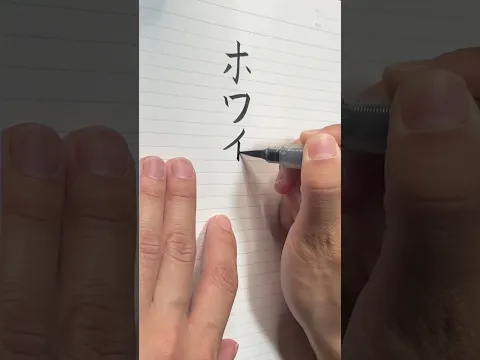 ホワイ